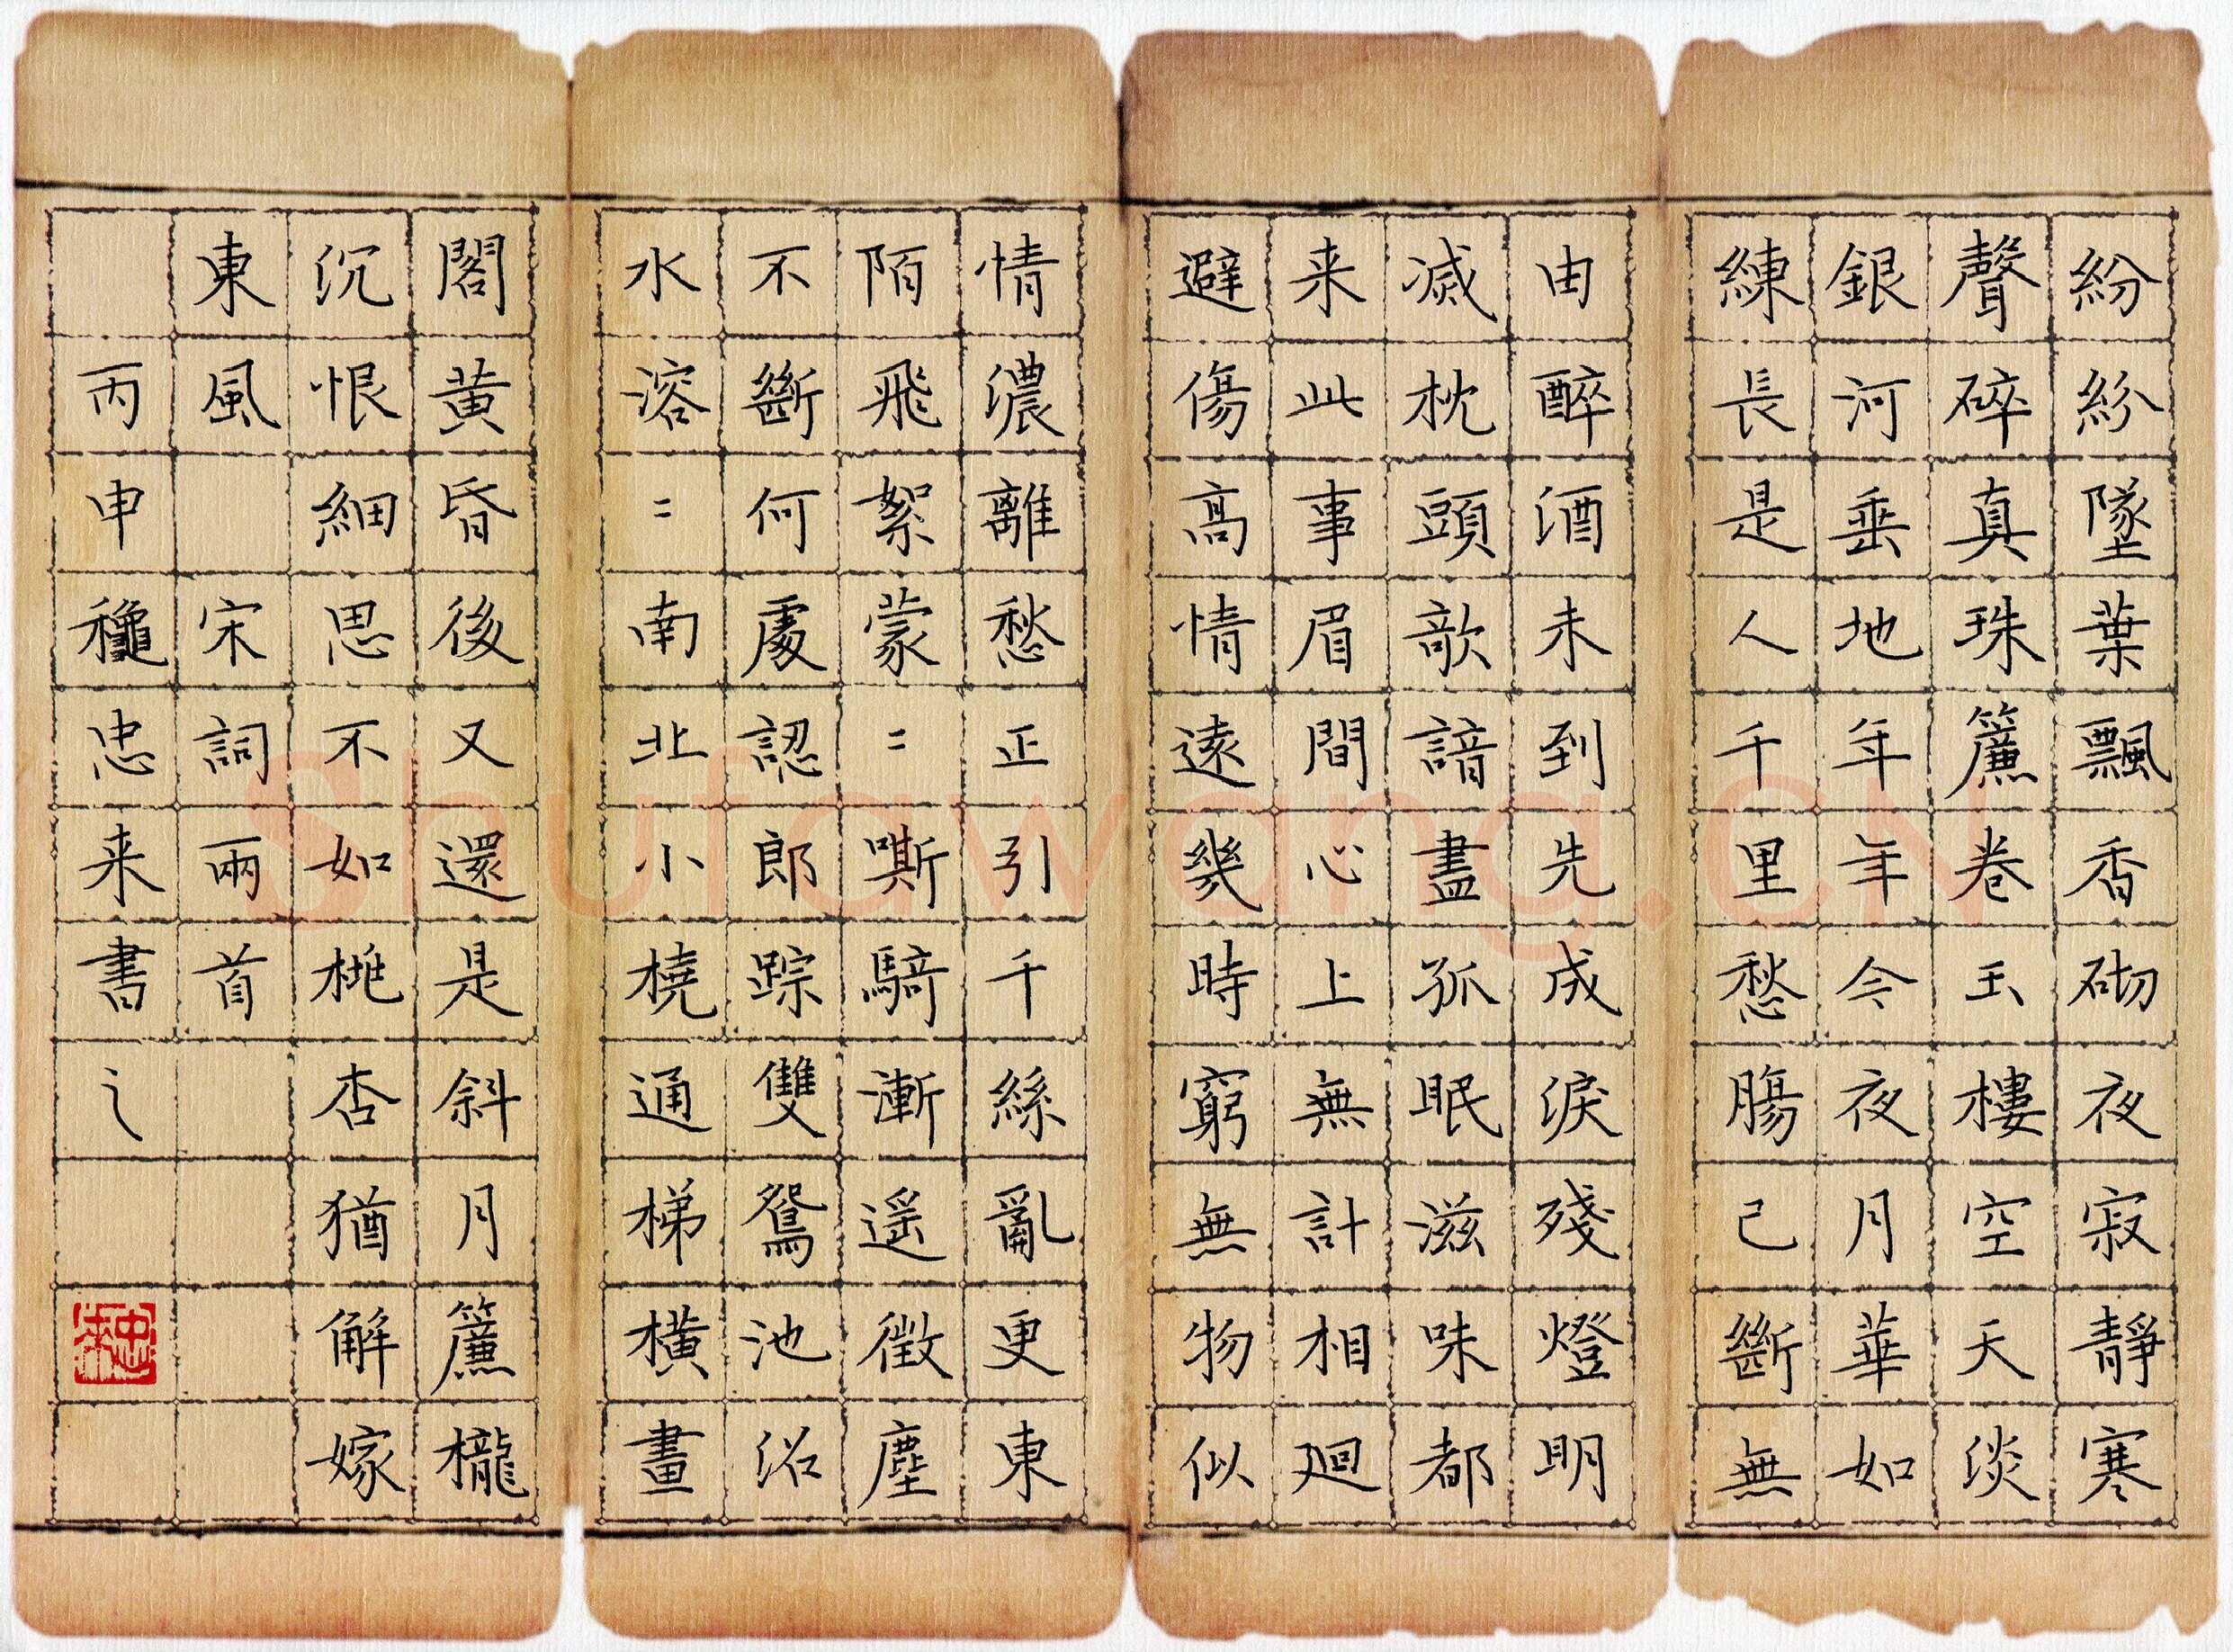 紛紛墜葉飄香砌夜寂靜寒
聲碎真珠簾卷玉樓空天淡
銀河垂地年年今夜月華如
練長是人千里愁腸已斷無
由醉酒未到先成淚殘燈明
滅枕頭欹諳盡孤眠滋味都
来此事眉間心上無計相迴
避傷高情遠幾時窮無物似
情濃離愁正引千絲亂更東
陌飛絮蒙=嘶騎漸遥徵塵
不斷何處認郎踪雙鴛池沼
水溶=南北小橈通梯橫畫
閣黄昏後又還是斜月簾櫳
沉恨細思不如桃杏猶解嫁
東風 宋詞兩首
丙申穐忠来書之
忠来
Shufawang.CN